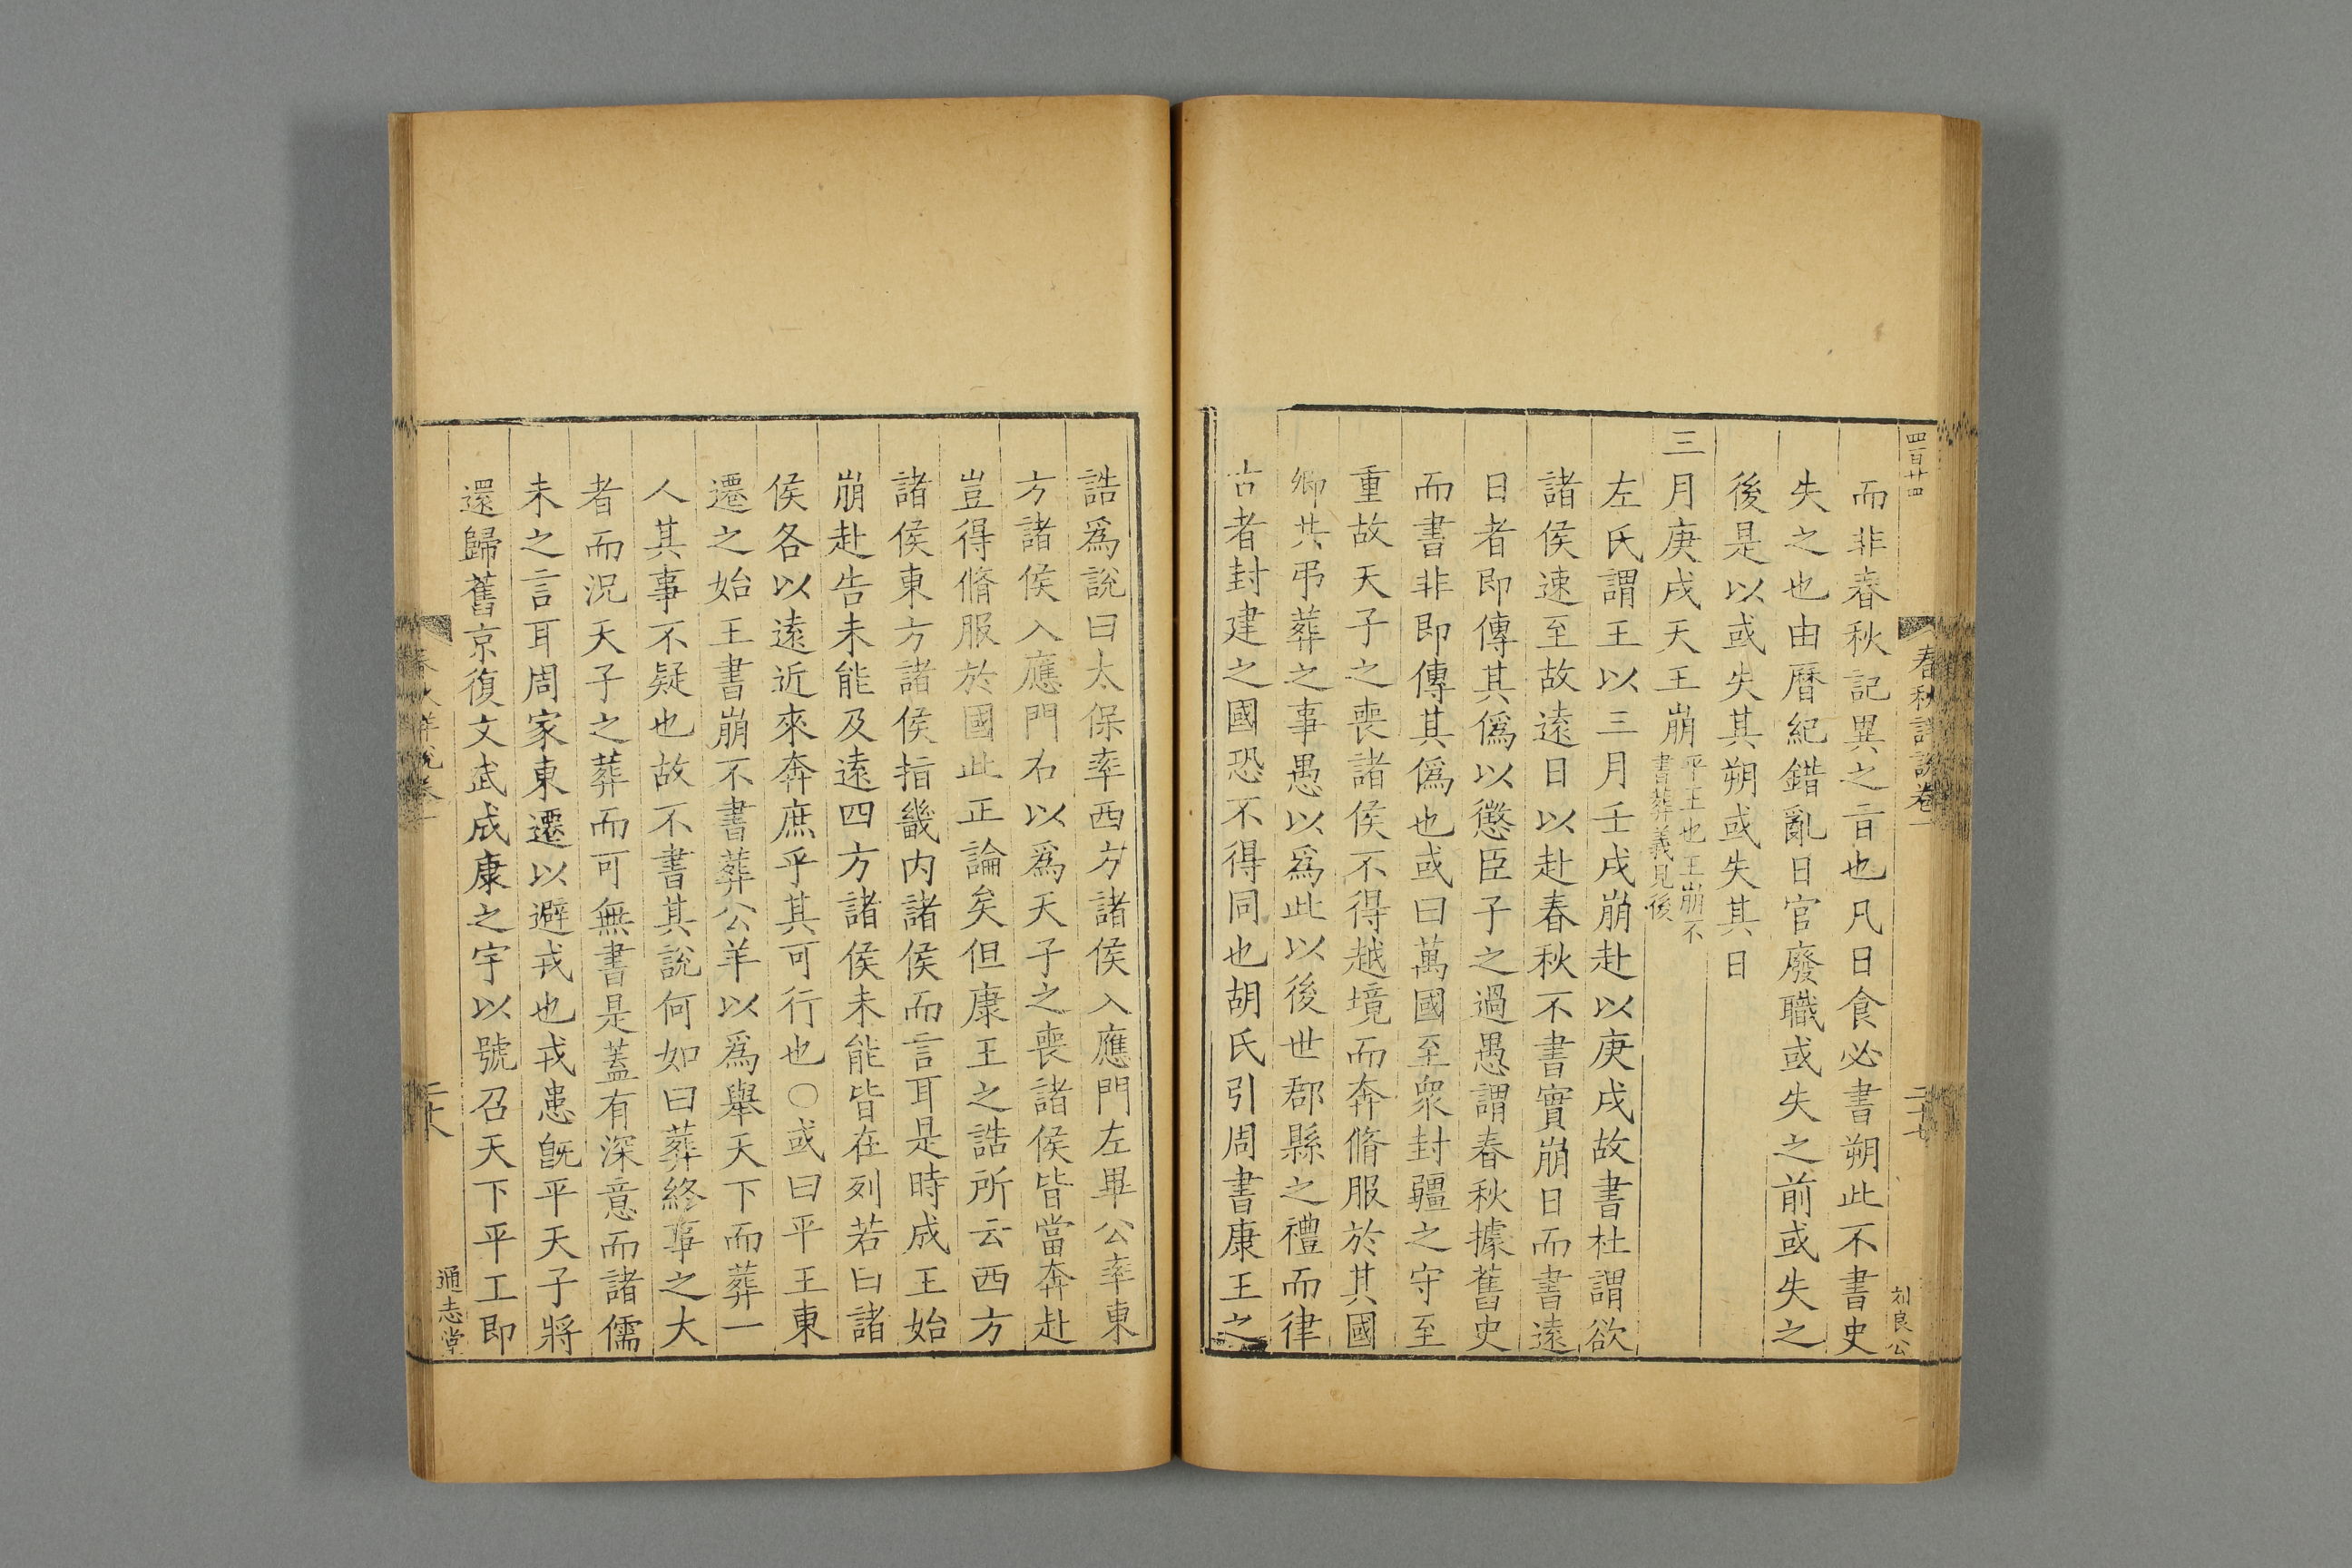 四百廿四
春秋詳說卷一
二十七
刘良公
而非春秋記異之旨也凡日食必書朔此不書史
失之也由曆紀錯亂日官廢職或失之前或失之
後是以或失其朔或失其日
三月庚戌天王崩平王也王崩不
書葬義見後
左氏謂王以三月壬戌崩赴以庚戌故書杜謂欲
諸侯速至故遠日以赴春秋不書實崩日而書遠
日者即傳其僞以懲臣子之過愚謂春秋據舊史
而書非即傳其僞也或曰萬國至衆封疆之守至
重故天子之喪諸侯不得越境而奔脩服於其國
卿共弔葬之事愚以爲此以後世郡縣之禮而律
古者封建之國恐不得同也胡氏引周書康王之
誥爲說曰太保率西方諸侯入應門左畢公率東
方諸侯入應門右以爲天子之喪諸侯皆當奔赴
豈得脩服於國此正論矣但康王之誥所云西方
諸侯東方諸侯指畿内諸侯而言耳是時成王始
崩赴告未能及遠四方諸侯未能皆在列若曰諸
侯各以遠近來奔庶乎其可行也○或曰平王東
遷之始王書崩不書葬公羊以爲舉天下而葬一
人其事不疑也故不書其說何如曰葬終事之大
者而況天子之葬而可無書是蓋有深意而諸儒
未之言耳周家東遷以避戎也戎患旣平天子將
還歸舊京復文武成康之宇以號召天下平王即
春秋詳說卷一
二十八
通志堂